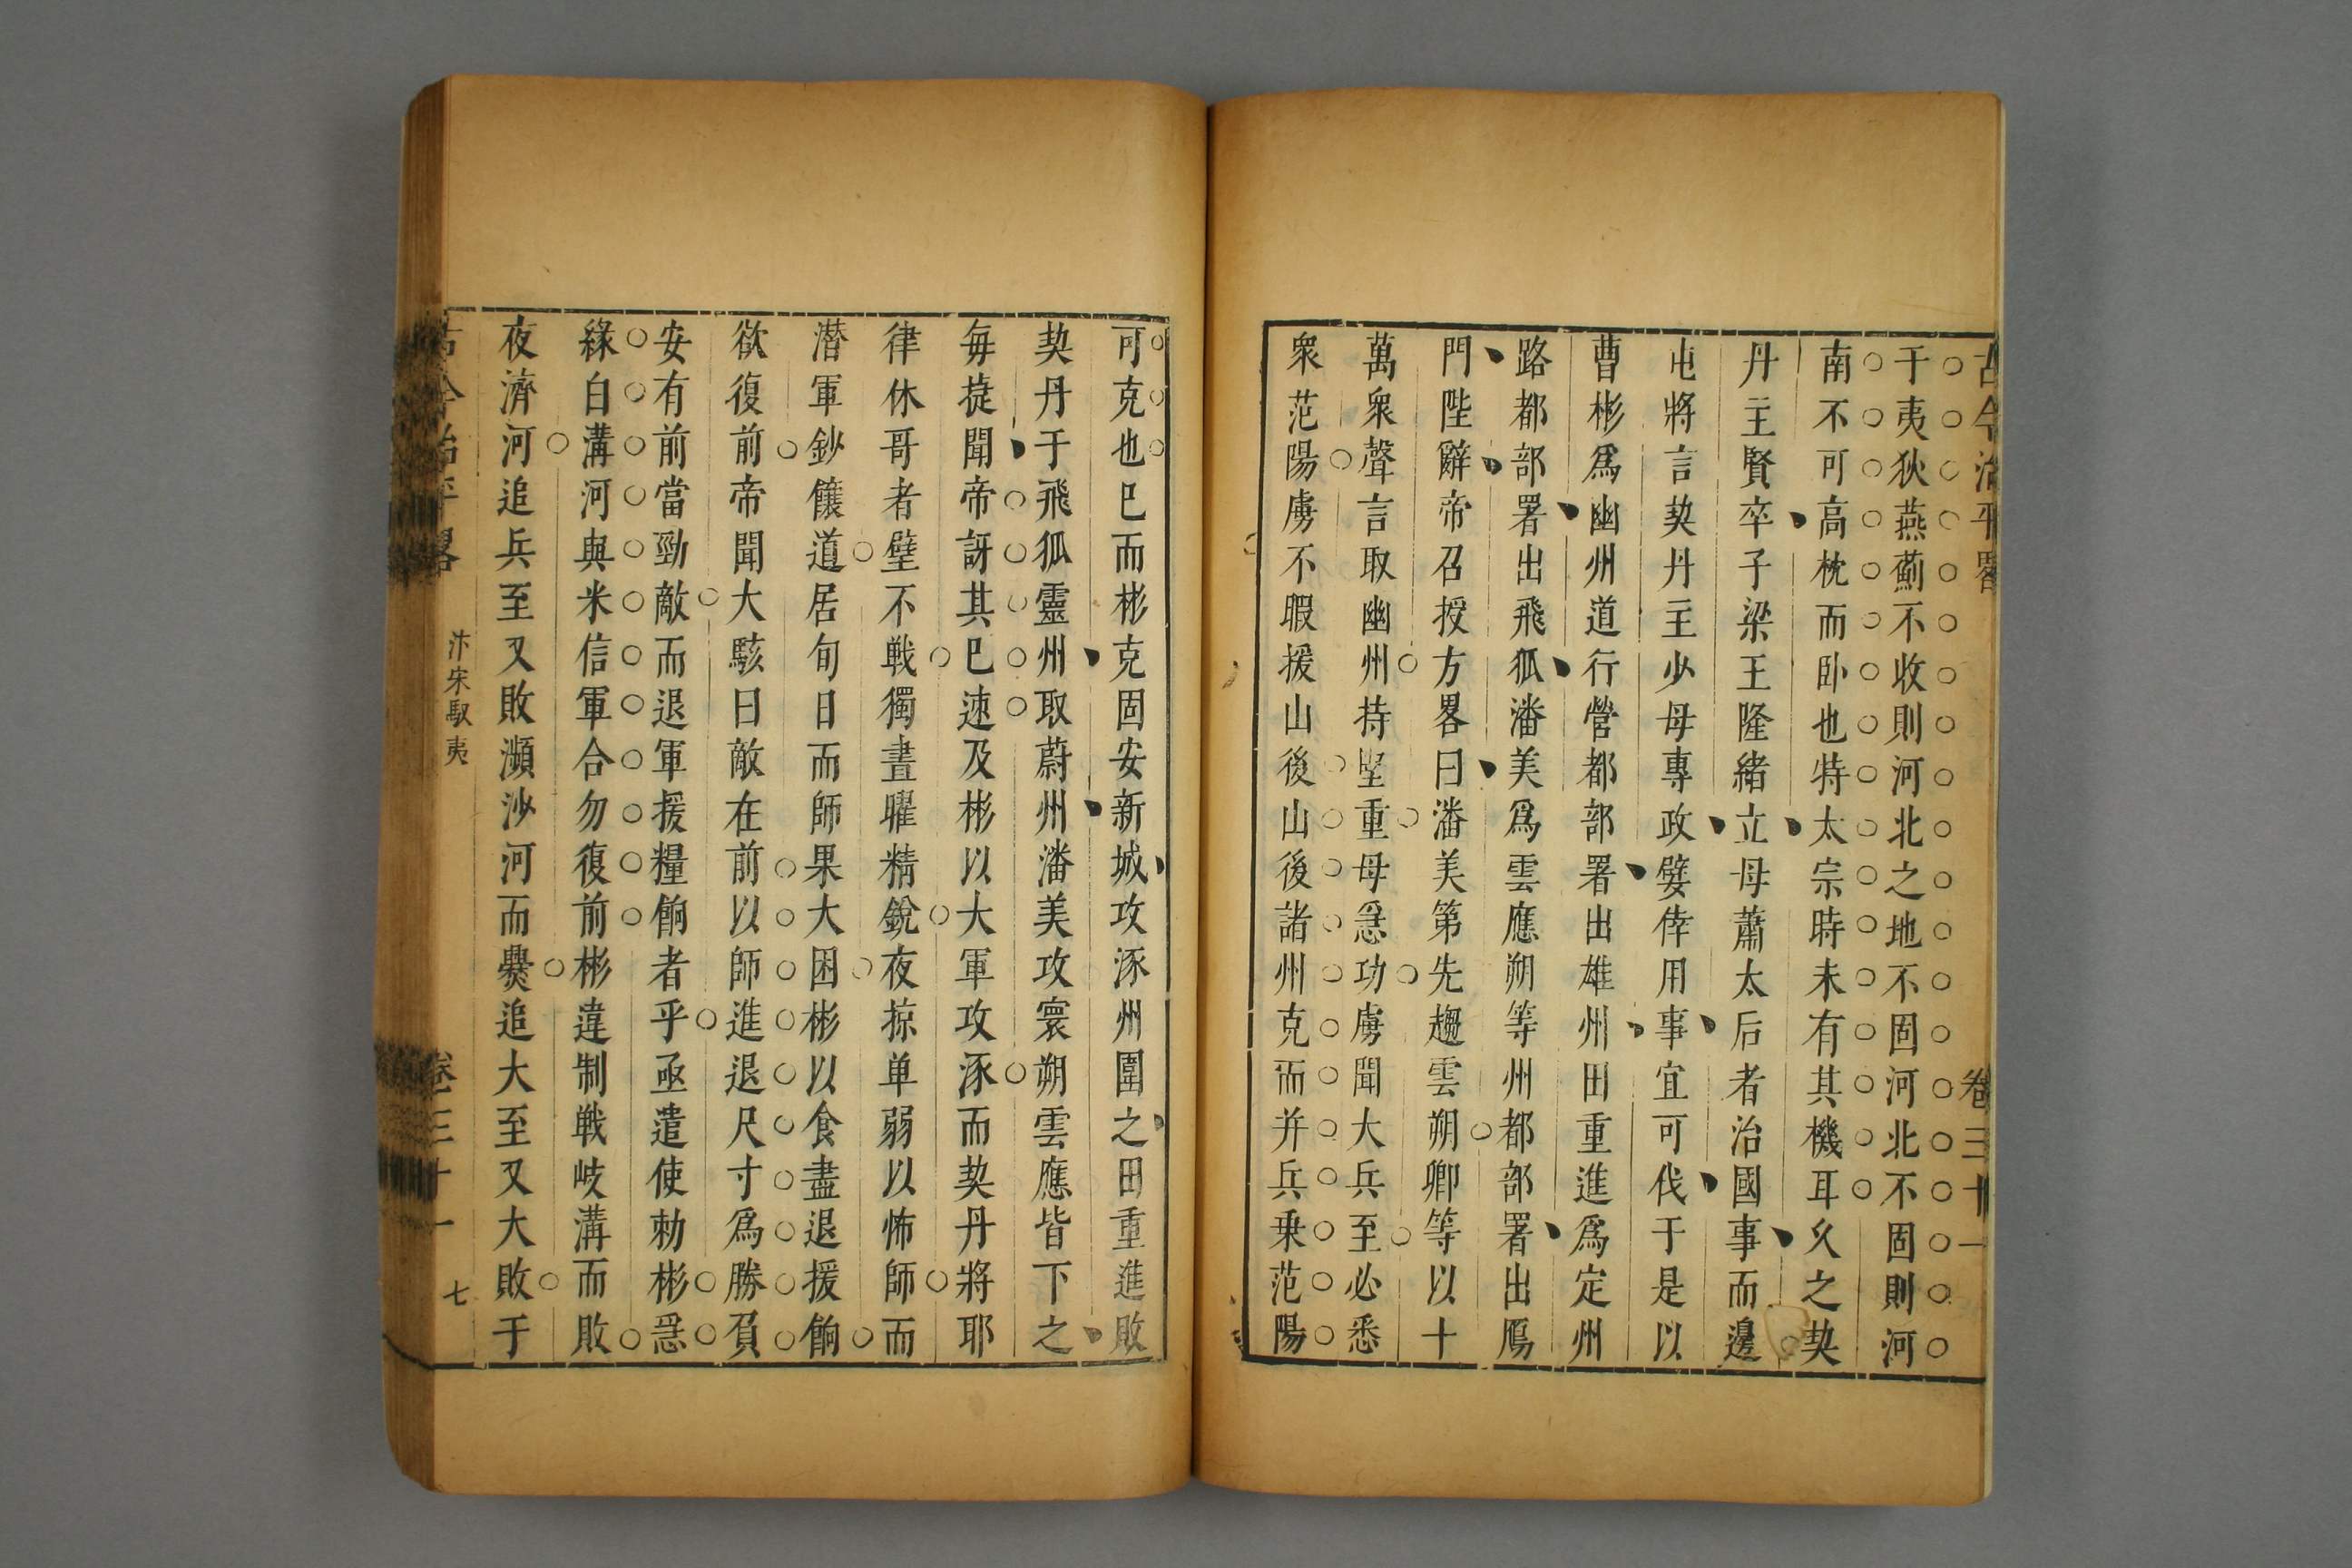 古今治平畧 卷三十一
于夷狄燕薊不收則河北之地不固河北不固則河
南不可高枕而卧也特太宗時未有其機耳久之契
丹主賢卒子梁王隆緒立母蕭太后者治國事而邊
屯將言契丹主少母專政嬖倖用事宜可伐于是以
曹彬爲幽州道行營都部署出雄州田重進爲定州
路都部署出飛狐潘美爲雲應朔等州都部署出鴈
門陛辭帝召授方畧曰潘美第先趨雲朔卿等以十
萬衆聲言取幽州持堅重毋急功虜聞大兵至必悉
衆范陽虜不暇援山後山後諸州克而并兵乗范陽
可克也巳而彬克固安新城攻涿州圍之田重進敗
契丹于飛狐靈州取蔚州潘美攻寰朔雲應皆下之
毎㨗聞帝訝其巳速及彬以大軍攻涿而契丹將耶
律休哥者壁不戰獨晝曜精銳夜掠单弱以怖師而
潜軍鈔饟道居旬日而師果大困彬以食盡退援餉
欲復前帝聞大駭曰敵在前以師進退尺寸爲勝負
安有前當勁敵而退軍援糧餉者乎亟遣使勅彬急
緣白溝河與米信軍合勿復前彬違制戰岐溝而敗
夜濟河追兵至又敗瀕沙河而爨追大至又大敗于
古今治平畧 汴宋馭夷 卷三十一 七